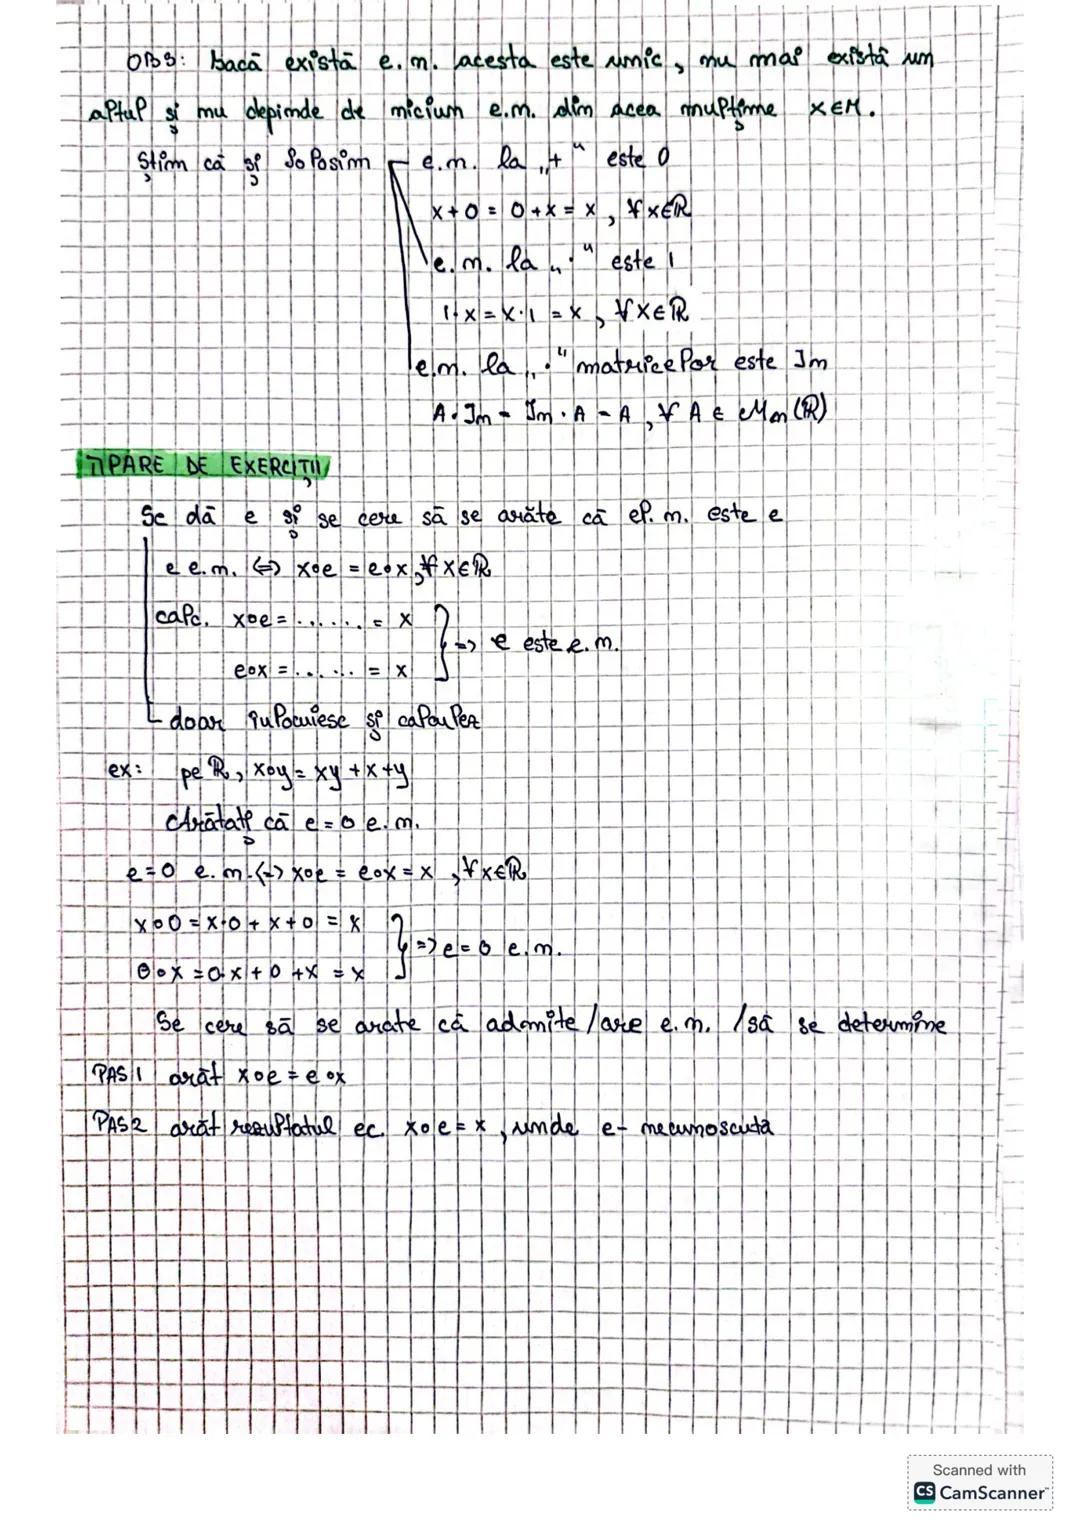 OBS: Dacă există e.m. acesta este unic, nu mai există un
altul și nu depinde de niciun e.m. din acea mulțime x∈M.
Știm că și folosim e.m. la „+" este 0
x+0 = 0+x = x, ∀x∈ℝ
e.m. la „·" este 1
1·x = x·1 = x, ∀x∈ℝ
e.m. la „·" matricelor este In
A·In = In·A = A, ∀ A ∈ Mn(ℝ)
TIPARE DE EXERCIȚII
Se dă e și se cere să se arăte că el. m. este e
e e.m. ⇔ x∘e = e∘x, ∀x∈ℝ
calc. x∘e = ...... = x
=> e este e.m.
e∘x = ...... = x
doar înlocuiesc și calculez
ex: pe ℝ, x∘y = xy + x + y
Arătați că e = 0 e.m.
e=0 e.m. <=> x∘e = e∘x = x, ∀x∈ℝ
x∘0 = x·0 + x + 0 = x
=> e = 0 e.m.
0∘x = 0·x + 0 + x = x
Se cere să se arate că admite / are e.m. / să se determine
PAS 1 arăt x∘e = e∘x
PAS 2 arăt rezultatul ec. x∘e = x, unde e - necunoscuta
Scanned with
CS CamScanner